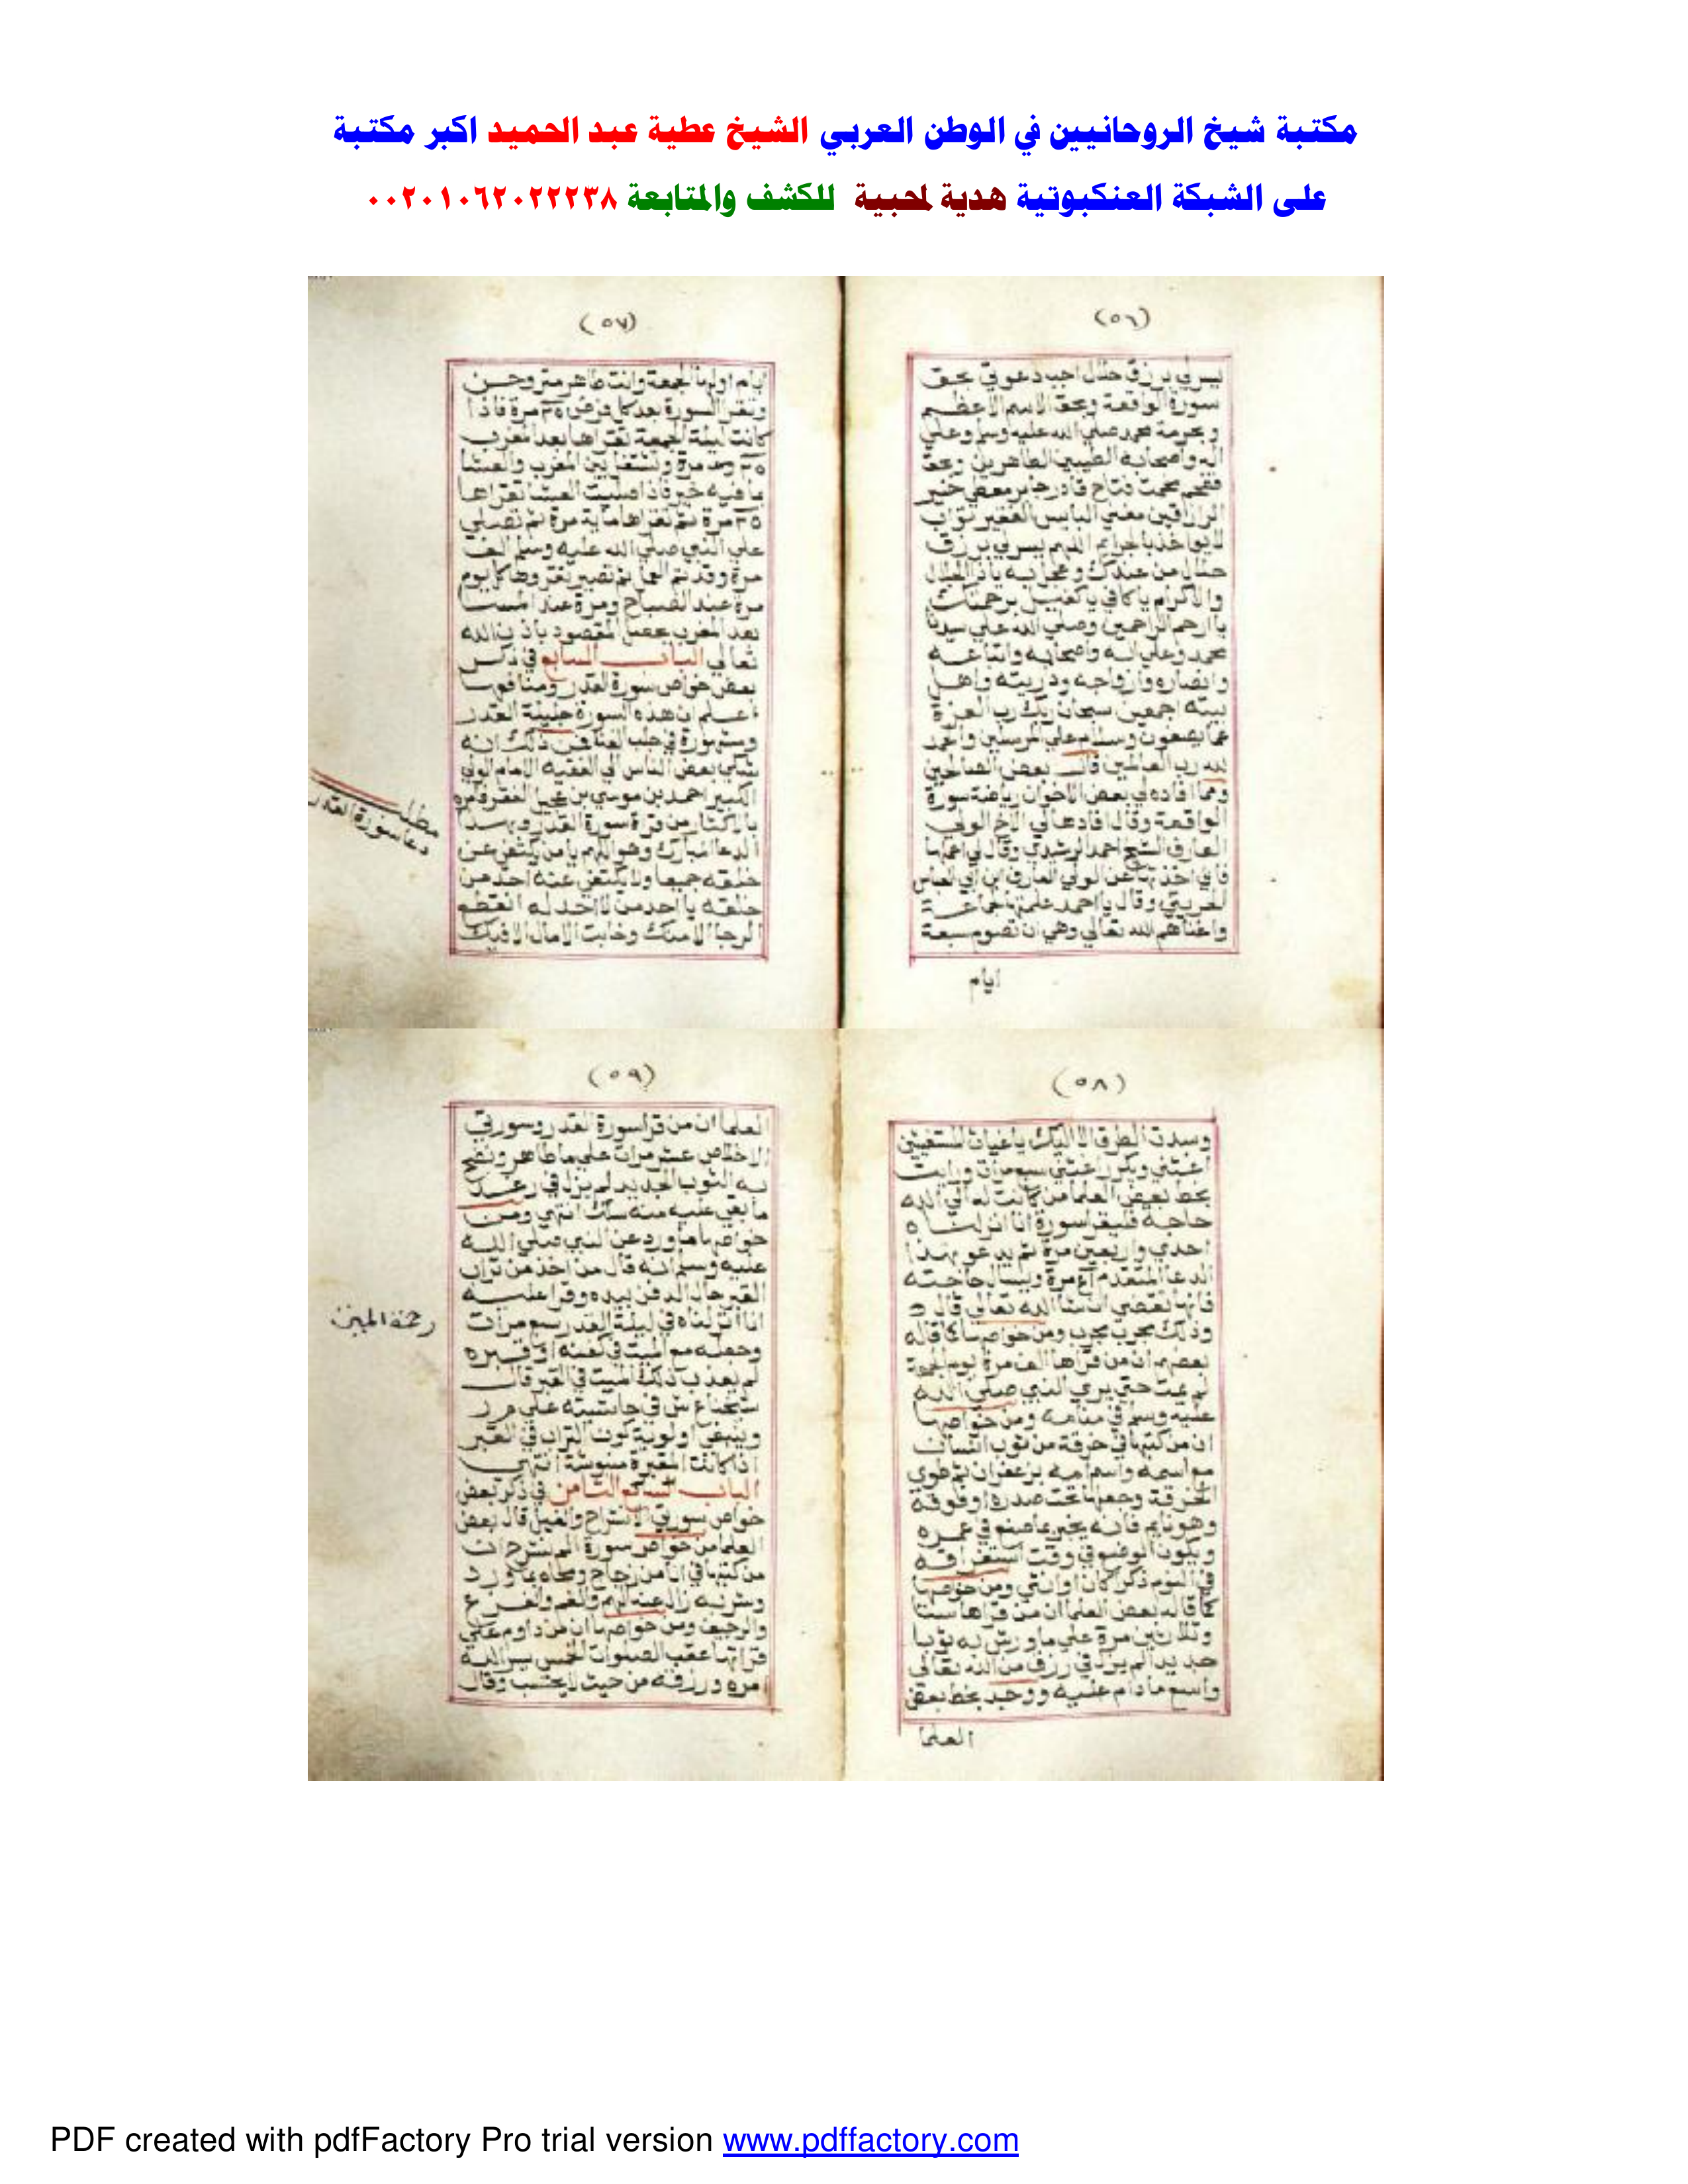 مكتبة شيخ الروحانيين في الوطن العربي الشيخ عطية عبد الحميد اكبر مكتبة
على الشبكة العنكبوتية هدية لمحبية للكشف والمتابعة ٠٠٢٠١٠٦٢٠٢٢٢٣٨
(٥٦)
يسر لي برزق حلال اجب دعوتي بحق
سورة الواقعة وبحق الاسم الاعظم
وبحرمة محمد صلي الله عليه وسلم وعلي
اله واصحابه الطيبين الطاهرين وبحق
فتاح قادر جابر معطي خير
الرازقين مغني البايس الفقير تواب
لا يواخذ بالجرايم اللهم يسر لي برزق
حلال من عندك وعجل به ياذا الجلال
والاكرام يا كافي يا كفيل برحمتك
ياارحم الراحمين وصلي الله علي سيدنا
محمد وعلي اله واصحابه واتباعه
وانصاره وازواجه وذريته واهل
بيته اجمعين سبحان ربك رب العزة
عما يصفون وسلام علي المرسلين والحمد
لله رب العالمين قال بعض الصالحين
ومما افاده لي بعض الاخوان رياضة سورة
الواقعة وقال افادها لي الاخ الولي
العارف الشيخ احمد الرشيدي وقال لي
فاني اخذتها عن الولي العارف ابن ابي العباس
وقال يا احمد علمتها جماعة
واغناهم الله تعالي وهي ان تصوم سبعة
ايام
(٥٧)
ايام اولها الجمعة وانت طاهر
وتقرا السورة بعد كل فرض ٢٥ مرة فاذا
كانت ليلة الجمعة تقراها بعد المغرب
٢٥ مرة وتشتغل بين المغرب والعشا
بما فيه خير فاذا صليت العشا تقراها
٢٥ مرة ثم تقراها ماية مرة ثم تصلي
علي النبي صلي الله عليه وسلم الف
مرة وقد تم العمل ثم تصير تقروها كل يوم
مرة عند الصباح ومرة عند المسا
بعد المغرب يحصل المقصود باذن الله
تعالي الباب السابع في ذكر
بعض خواص سورة القدر ومنافعها
اعلم ان هذه السورة جليلة القدر
ومشهورة في جلب الغنا فمن ذلك انه
شكي بعض الناس الي الفقيه الامام الولي
الكبير احمد بن موسي بن عجيل الفقر فامره
بالاكثار من قراة سورة القدر وبهذا
الدعا المبارك وهو اللهم يا من يكتفي عن
خلقه جميعا ولا يكتفي عنه احد من
خلقه يا احد من لا احد له انقطع
الرجا الا منك وخابت الامال الا فيك
مطلب
دعا سورة القدر
(٥٨)
وسدت الطرق الا اليك يا غياث المستغيثين
اغثني ويكرر اغثني سبع مرات ورايت
بخط بعض العلما من كانت له الي الله
حاجة فليقرا سورة انا انزلناه
احدي واربعين مرة ثم يدعو بهذا
الدعا المتقدم ٤١ مرة ويسال حاجته
فانها تقضي ان شا الله تعالي قال
وذلك مجرب مجرب ومن خواصها كما قاله
بعضهم ان من قراها الف مرة يوم الجمعة
لم يمت حتي يري النبي صلي الله
عليه وسلم في منامه ومن خواصها
ان من كتبها في خرقة من ثوب انسان
مع اسمه واسم امه بزعفران ثم طوي
الخرقة وجعلها تحت صدره او فوقه
وهو نايم فانه يخبر بما صنع في عمره
ويكون الوضع في وقت استغراقه
في النوم ذكر كان او انثي ومن خواصها
كما قاله بعض العلما ان من قراها ستا
وثلاثين مرة علي ما ورش به ثوبا
جديدا لم يزل في رزق من الله تعالي
واسع ما دام عليه ووجد بخط بعض
العلما
(٥٩)
العلما ان من قرا سورة القدر وسورتي
الاخلاص عشر مرات علي ما طاهر ونضح
به الثوب الجديد لم يزل في رغد
ما بقي عليه منه سلك انتهي ومن
خواصها ما ورد عن النبي صلي الله
عليه وسلم انه قال من اخذ من تراب
القبر حال الدفن بيده وقرا عليه
انا انزلناه في ليلة القدر سبع مرات
وجعله مع الميت في كفنه او قبره
لم يعذب ذلك الميت في القبر قال
شيخنا ع ش في حاشيته علي م ر
وينبغي اولوية كون التراب في القبر
اذا كانت المقبرة منبوشة انتهي
الباب الثامن في ذكر بعض
خواص سورتي الانشراح والفيل قال بعض
العلما من خواص سورة الم نشرح ان
من كتبها في انا من زجاج ومحاه بما ورد
وشربه زال عنه الهم والغم والفزع
والرجيف ومن خواصها ان من داوم علي
قراتها عقب الصلوات الخمس يسر الله
امره ورزقه من حيث لا يحتسب وقال
PDF created with pdfFactory Pro trial version www.pdffactory.com